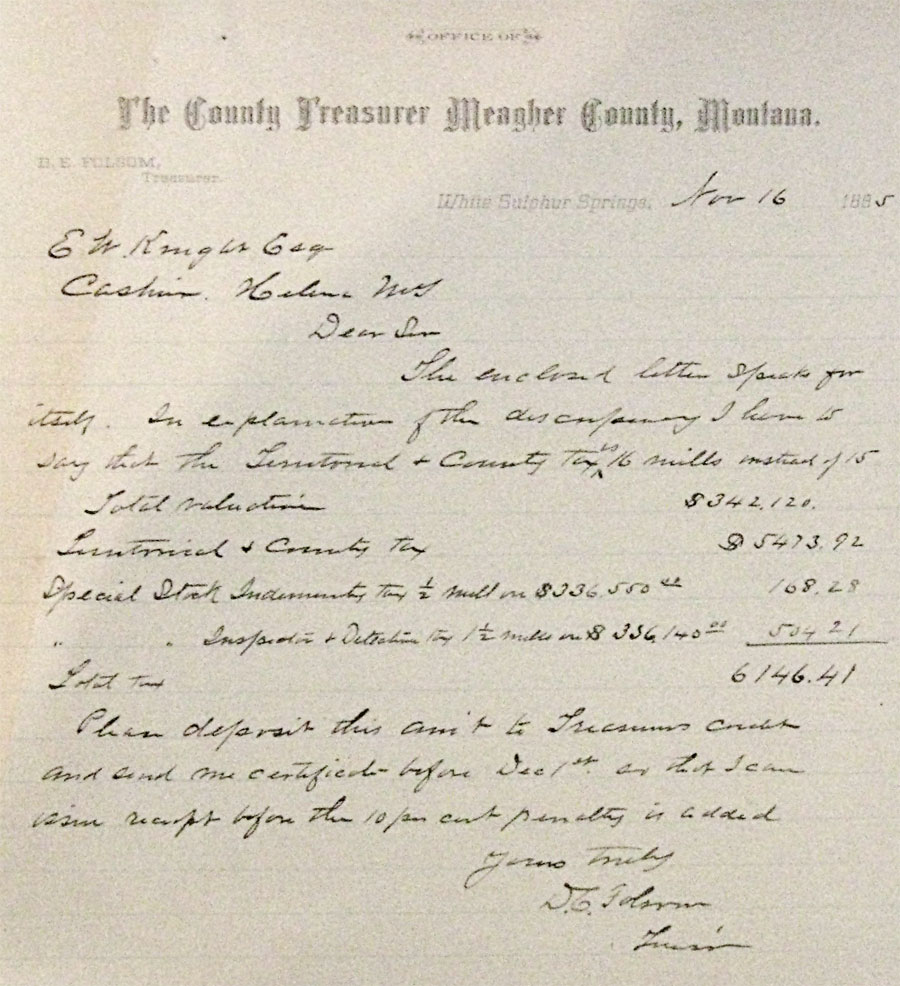 OFFICE OF
The County Treasurer Meagher County, Montana.
D. E. FOLSOM,
Treasurer.
White Sulphur Springs, Nov 16 1885
E W. Knight Esq
Cashier. Helena M T
Dear Sir
The enclosed letter speaks for
itself. In explanation of the discrepancy I have to
say that the Territorial & County tax is 16 mills instead of 15
Total valuation $342,120.
Territorial & County tax $5473.92
Special Stock Indemnity tax ½ mill on $336,550 00 168.28
" " Inspector & Detective tax 1½ mills on $336,140 00 504 21
Total tax 6146.41
Please deposit this am't to Treasurers credit
and send me certificate before Dec 1st. so that I can
issue receipt before the 10 per cent penalty is added
Yours truly
D. E. Folsom
Treas'r